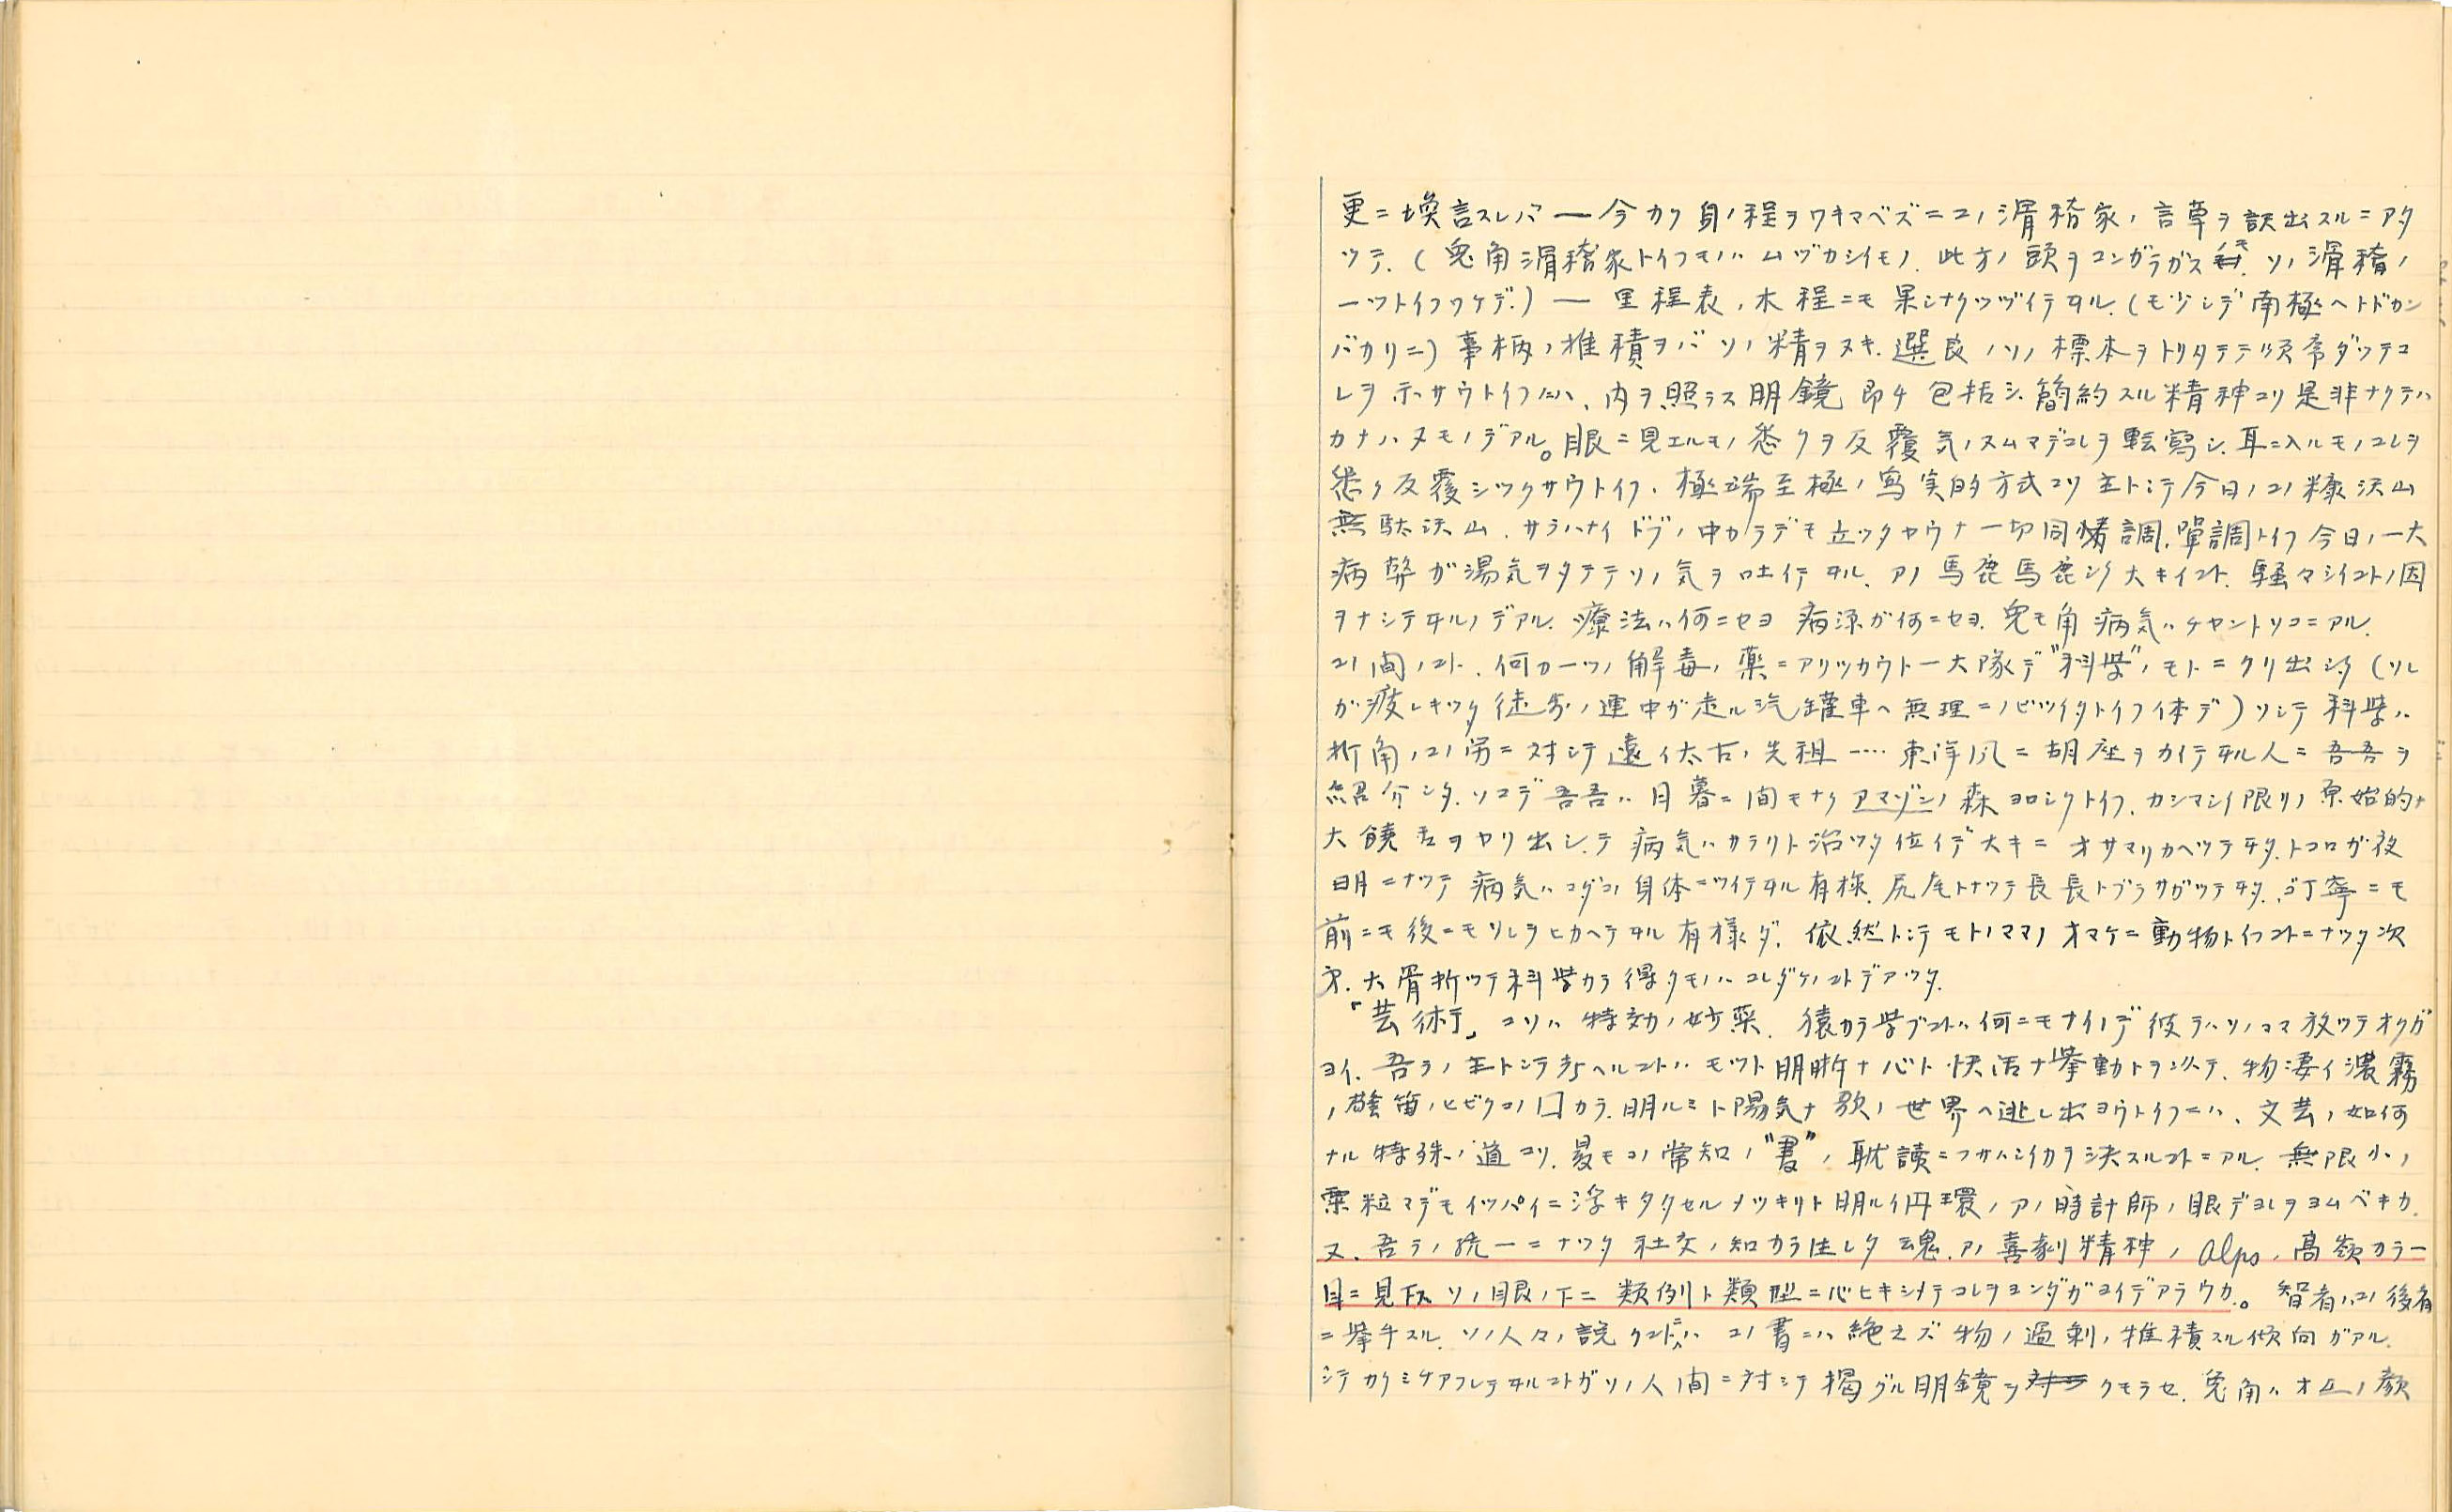 更ニ換言スレバ ― 今カク身ノ程ヲワキマベズニコノ滑稽家ノ言草ヲ訳出スルニアタ
ツテ.(兔角滑稽家トイフモノハムヅカシイモノ.此方ノ頭ヲコンガラガスモ.ソノ滑稽ノ
一ツトイフワケデ.) ― 里程表ノ木程ニモ果シナクツヅイテヰル.(モ少シデ南極ヘトドカン
バカリニ)事柄ノ堆積ヲバソノ精ヲヌキ.選良ノソノ標本ヲトリタテテ順序ダツテコ
レヲ示サウトイフニハ、内ヲ照ラス明鏡即チ包括シ.簡約スル精神コソ是非ナクテハ
カナハヌモノデアル。眼ニ見エルモノ悉クヲ反覆気ノスムマデコレヲ転写シ.耳ニ入ルモノコレヲ
悉ク反覆シツクサウトイフ、極端至極ノ写実的方式コソ主トシテ今日ノコノ糠沢山
無駄沢山.サラハナイドブノ中カラデモ立ツタヤウナ一切同情調.単調トイフ今日ノ一大
病弊ガ湯気ヲタテテソノ気ヲ吐イテヰル、アノ馬鹿馬鹿シク大キイコト.騒々シイコトノ因
ヲナシテヰルノデアル.療法ハ何ニセヨ病源ガ何ニセヨ.兔モ角病気ハチヤントソコニアル.
コノ間ノコト.何カ一ツノ解毒ノ薬ニアリツカウト一大隊デ"科学"ノモトニクリ出シタ(ソレ
ガ疲レキツタ徒歩ノ連中ガ走ル汽罐車ヘ無理ニノビツイタトイフ体デ)ソシテ科学ハ
折角ノコノ労ニ対シテ遠イ太古ノ先祖 ‥‥東洋風ニ胡座ヲカイテヰル人ニ吾吾ヲ
紹介シタ.ソコデ吾吾ハ日暮ニ間モナクアマゾンノ森ヨロシクトイフ.カシマシイ限リノ原始的ナ
大饒舌ヲヤリ出シ.テ病気ハカラリト治ツタ位イデ大キニオサマリカヘツテヰタ.トコロガ夜
明ニナツテ病気ハコダコノ身体ニツイテヰル有様.尻尾トナツテ長長トブラサガツテヰタ.ゴ丁寧ニモ
前ニモ後ニモソレヲヒカヘテヰル有様ダ.依然トシテモトノママノオマケニ動物トイフコトニナツタ次
第.大骨折ツテ科学カラ得タモノハコレダケノコトデアツタ.
「芸術」コソハ特効ノ妙薬.猿カラ学ブコトハ何ニモナイノデ彼ラハソノママ放ツテオクガ
ヨイ.吾ラノ主トシテ考ヘルコトハモツト明晰ナ心ト快活ナ挙動トヲ以テ、物凄イ濃霧
ノ警笛ノヒビクコノ口カラ.明ルミト陽気ナ歌ノ世界ヘ逃レ出ヨウトイフニハ、文芸ノ如何
ナル特殊ノ道コソ.最モコノ常知ノ"書"ノ耽読ニフサハシイカヲ決スルコトニアル.無限小ノ
粟粒マデモイツパイニ浮キタタセルメツキリト明ルイ円環ノアノ時計師ノ眼デコレヲヨムベキカ.
又.吾ラノ統一ニナツタ社交ノ知カラ生レタ魂.アノ喜劇精神ノAlpsノ高嶺カラ一
目ニ見下スソノ眼ノ下ニ類例ト類型ニ心ヒキシメテコレヲヨンダガヨイデアラウカ.。智者ハコノ後者
ニ挙手スル.ソノ人々ノ説クコトニハコノ書ニハ絶エズ物ノ過剰ノ堆積スル傾向ガアル.
シテカクミチアフレテヰルコトガソノ人間ニ対シテ掲グル明鏡ヲクモラセ.兔角ハオ互ノ顔